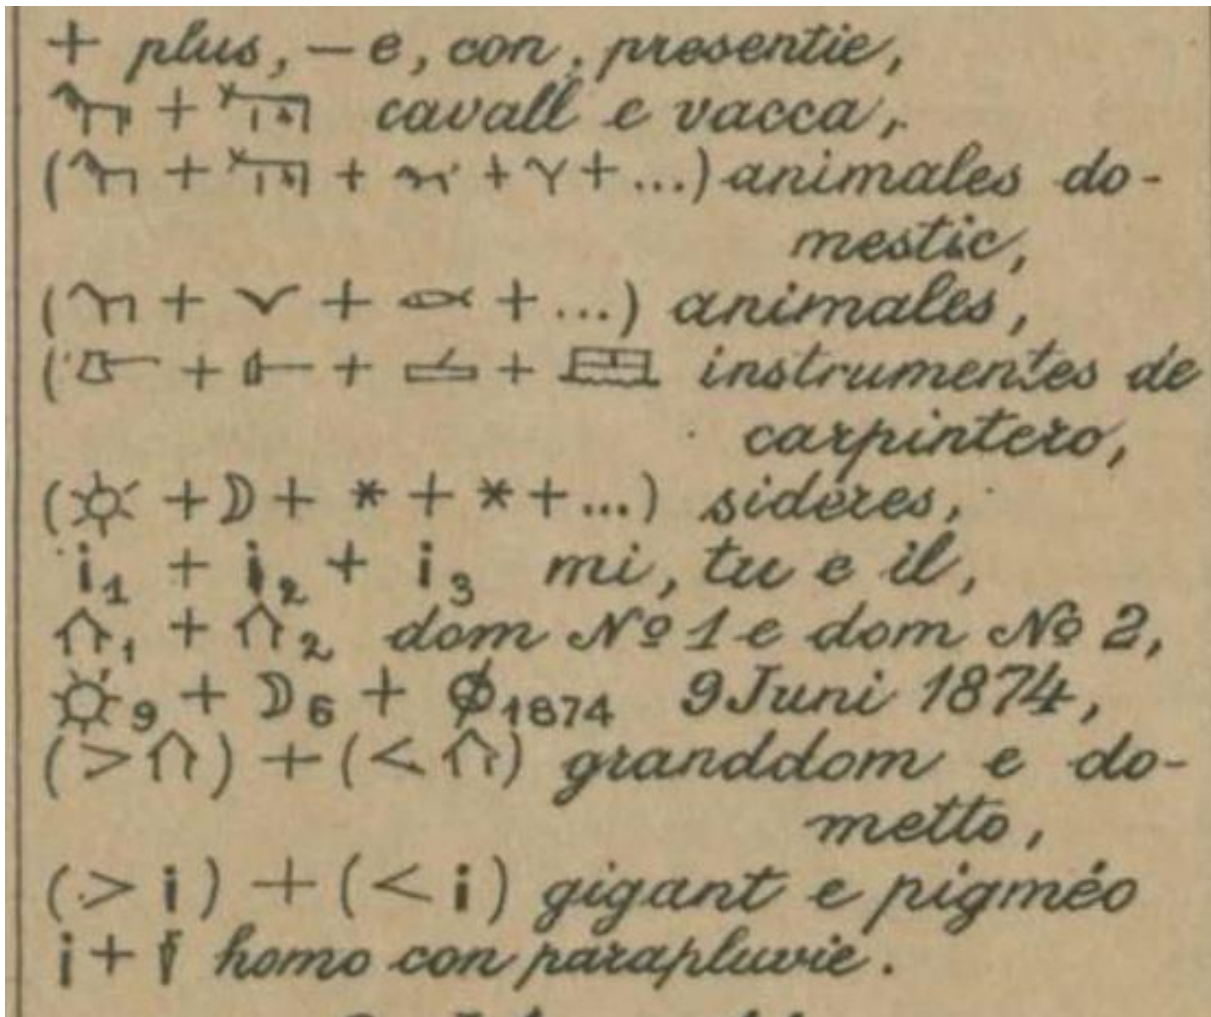 + plus, – e, con, presentie,
+ cavall e vacca,
( + + + + ...) animales do-
mestic,
( + + + ...) animales,
( + + + instrumentes de
carpintero,
( + + * + * + ...) sidéres,
i₁ + i₂ + i₃ mi, tu e il,
₁ + ₂ dom Nº 1 e dom Nº 2,
₉ + ₆ + ₁₈₇₄ 9 Juni 1874,
(> ) + (< ) granddom e do-
metto,
(> i) + (< i) gigant e pigméo
i + homo con parapluvie.